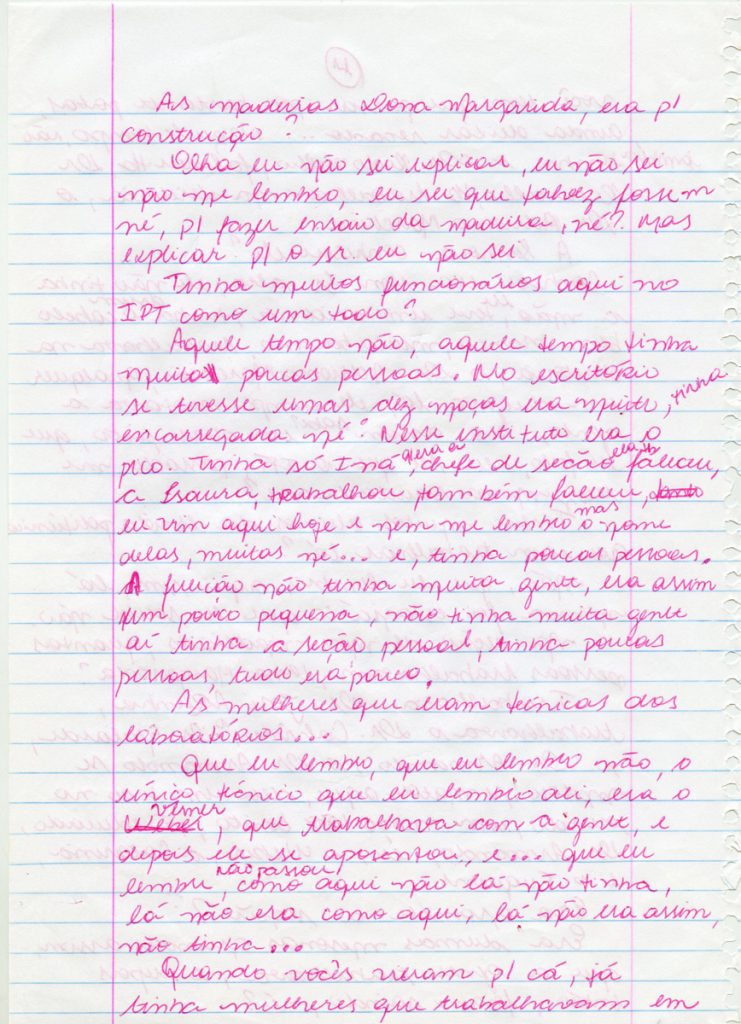 As madeiras Dona Margarida, era p/
construção?
Olha eu não sei explicar, eu não sei
não me lembro, eu sei que talvez fossem
né, p/ fazer ensaio da madeira, né? Mas
explicar p/ o sr. eu não sei
Tinha muitos funcionários aqui no
IPT como um todo?
Aquele tempo não, aquele tempo tinha
muita poucas pessoas. No escritório
se tivesse umas dez moças era muito, tinha
encarregada né? Nesse instituto era o
pico. Tinha só Iná, que era a chefe de seção, ela já faleceu,
a Isaura, trabalhou também faleceu,
eu vim aqui hoje e nem me lembro mas o nome
delas, muitas né... e, tinha poucas pessoas.
A função não tinha muita gente, era assim
um pouco pequena, não tinha muita gente
aí tinha a seção pessoal, tinha poucas
pessoas, tudo era pouco.
As mulheres que eram técnicas dos
laboratórios...
Que eu lembro, que eu lembro não, o
único técnico que eu lembro ali, era o
Weber Verner, que trabalhava com a gente, e
depois ele se aposentou, e... que eu
lembre, não passou, como aqui não lá não tinha,
lá não era como aqui, lá não era assim,
não tinha...
Quando vocês vieram p/ cá, já
tinha mulheres que trabalhavam em